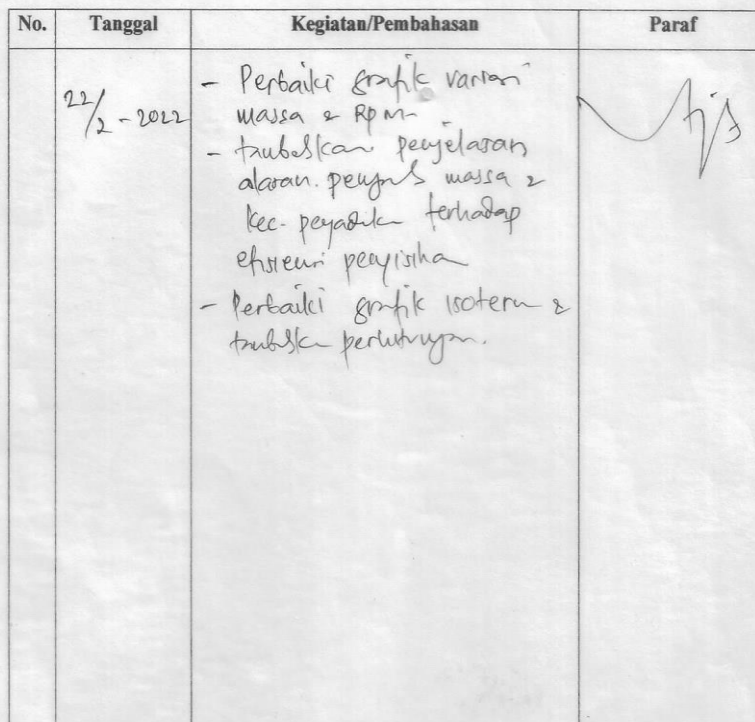 No. Tanggal Kegiatan/Pembahasan Paraf
22/2 - 2022
- Perbaiki grafik variasi
massa & RPM
- tambahkan penjelasan
alasan pengaruh massa &
kec. pengaduk terhadap
efisiensi penyisihan
- Perbaiki grafik isoterm &
tambahkan perhitungan.